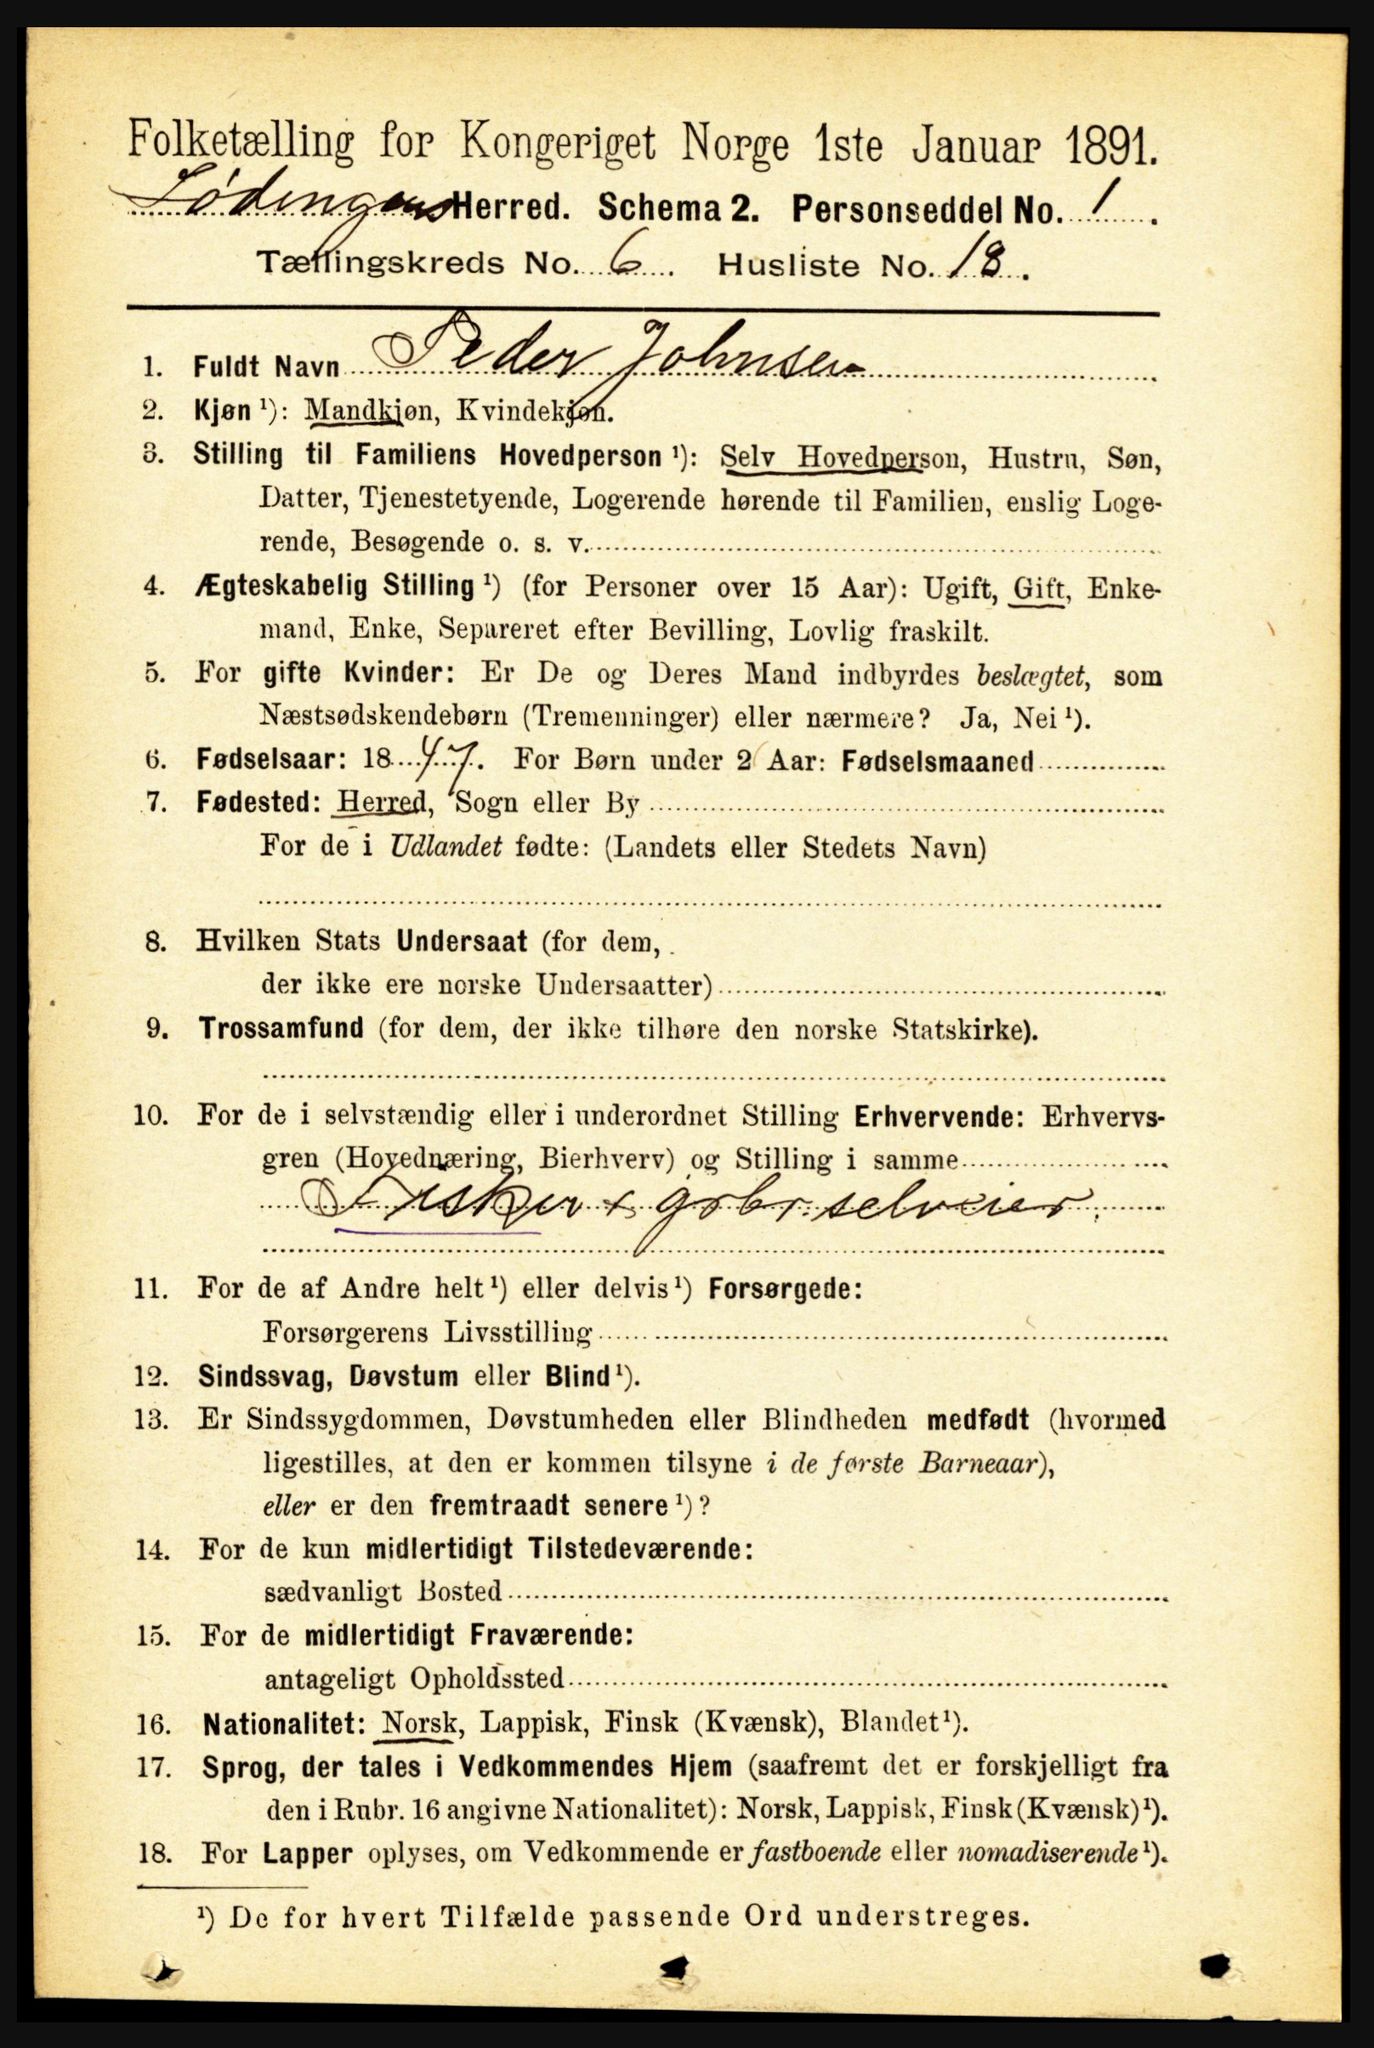 Folketælling for Kongeriget Norge 1ste Januar 1891.
Lødingens Herred. Schema 2. Personseddel No. 1.
Tællingskreds No. 6. Husliste No. 18.
1. Fuldt Navn Peder Johnsen
2. Kjøn ¹): Mandkjøn, Kvindekjøn.
3. Stilling til Familiens Hovedperson ¹): Selv Hovedperson, Hustru, Søn,
Datter, Tjenestetyende, Logerende hørende til Familien, enslig Loge-
rende, Besøgende o. s. v.
4. Ægteskabelig Stilling ¹) (for Personer over 15 Aar): Ugift, Gift, Enke-
mand, Enke, Separeret efter Bevilling, Lovlig fraskilt.
5. For gifte Kvinder: Er De og Deres Mand indbyrdes beslægtet, som
Næstsødskendebørn (Tremenninger) eller nærmere? Ja, Nei ¹).
6. Fødselsaar: 1847. For Børn under 2 Aar: Fødselsmaaned
7. Fødested: Herred, Sogn eller By
For de i Udlandet fødte: (Landets eller Stedets Navn)
8. Hvilken Stats Undersaat (for dem,
der ikke ere norske Undersaatter)
9. Trossamfund (for dem, der ikke tilhøre den norske Statskirke).
10. For de i selvstændig eller i underordnet Stilling Erhvervende: Erhvervs-
gren (Hovednæring, Bierhverv) og Stilling i samme
Fisker + gbr. selveier
11. For de af Andre helt ¹) eller delvis ¹) Forsørgede:
Forsørgerens Livsstilling
12. Sindssvag, Døvstum eller Blind ¹).
13. Er Sindssygdommen, Døvstumheden eller Blindheden medfødt (hvormed
ligestilles, at den er kommen tilsyne i de første Barneaar),
eller er den fremtraadt senere ¹)?
14. For de kun midlertidigt Tilstedeværende:
sædvanligt Bosted
15. For de midlertidigt Fraværende:
antageligt Opholdssted
16. Nationalitet: Norsk, Lappisk, Finsk (Kvænsk), Blandet ¹).
17. Sprog, der tales i Vedkommendes Hjem (saafremt det er forskjelligt fra
den i Rubr. 16 angivne Nationalitet): Norsk, Lappisk, Finsk (Kvænsk) ¹).
18. For Lapper oplyses, om Vedkommende er fastboende eller nomadiserende ¹).
¹) De for hvert Tilfælde passende Ord understreges.